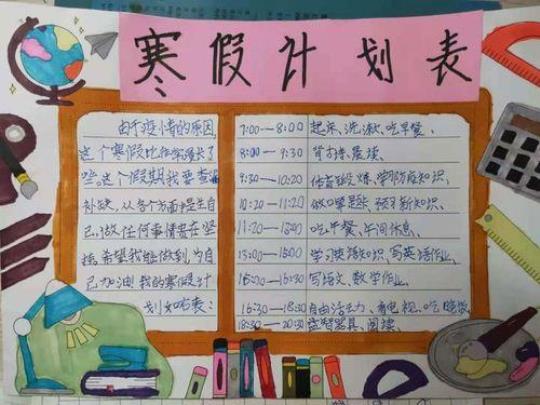 寒假计划表
由于疫情的原因,
这个寒假比往常漫长了
些,这个假期我要查漏
补缺,从各个方面提升自
己,做任何事情贵在坚
持,希望我能做到,为自
己加油!我的寒假计
划如表:
7:00—8:00 起床、洗漱、吃早餐、
8:00—9:30 背书、晨读、
9:30—10:20 体育锻炼、学防疫知识、
10:20—11:20 做口算题卡、预习新知识、
11:20—13:00 吃午餐、午间休息、
13:00—15:00 学习英语知识、写英语作业、
15:00—16:30 写语文、数学作业、
16:30—18:30 自由活动、看电视、吃晚饭
18:30—20:30 益智器具、阅读、